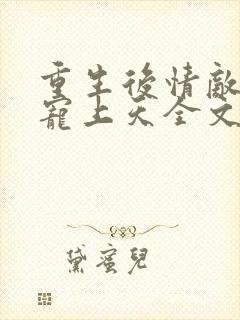 重生後情敵
寵上天全文
黛蜜兒